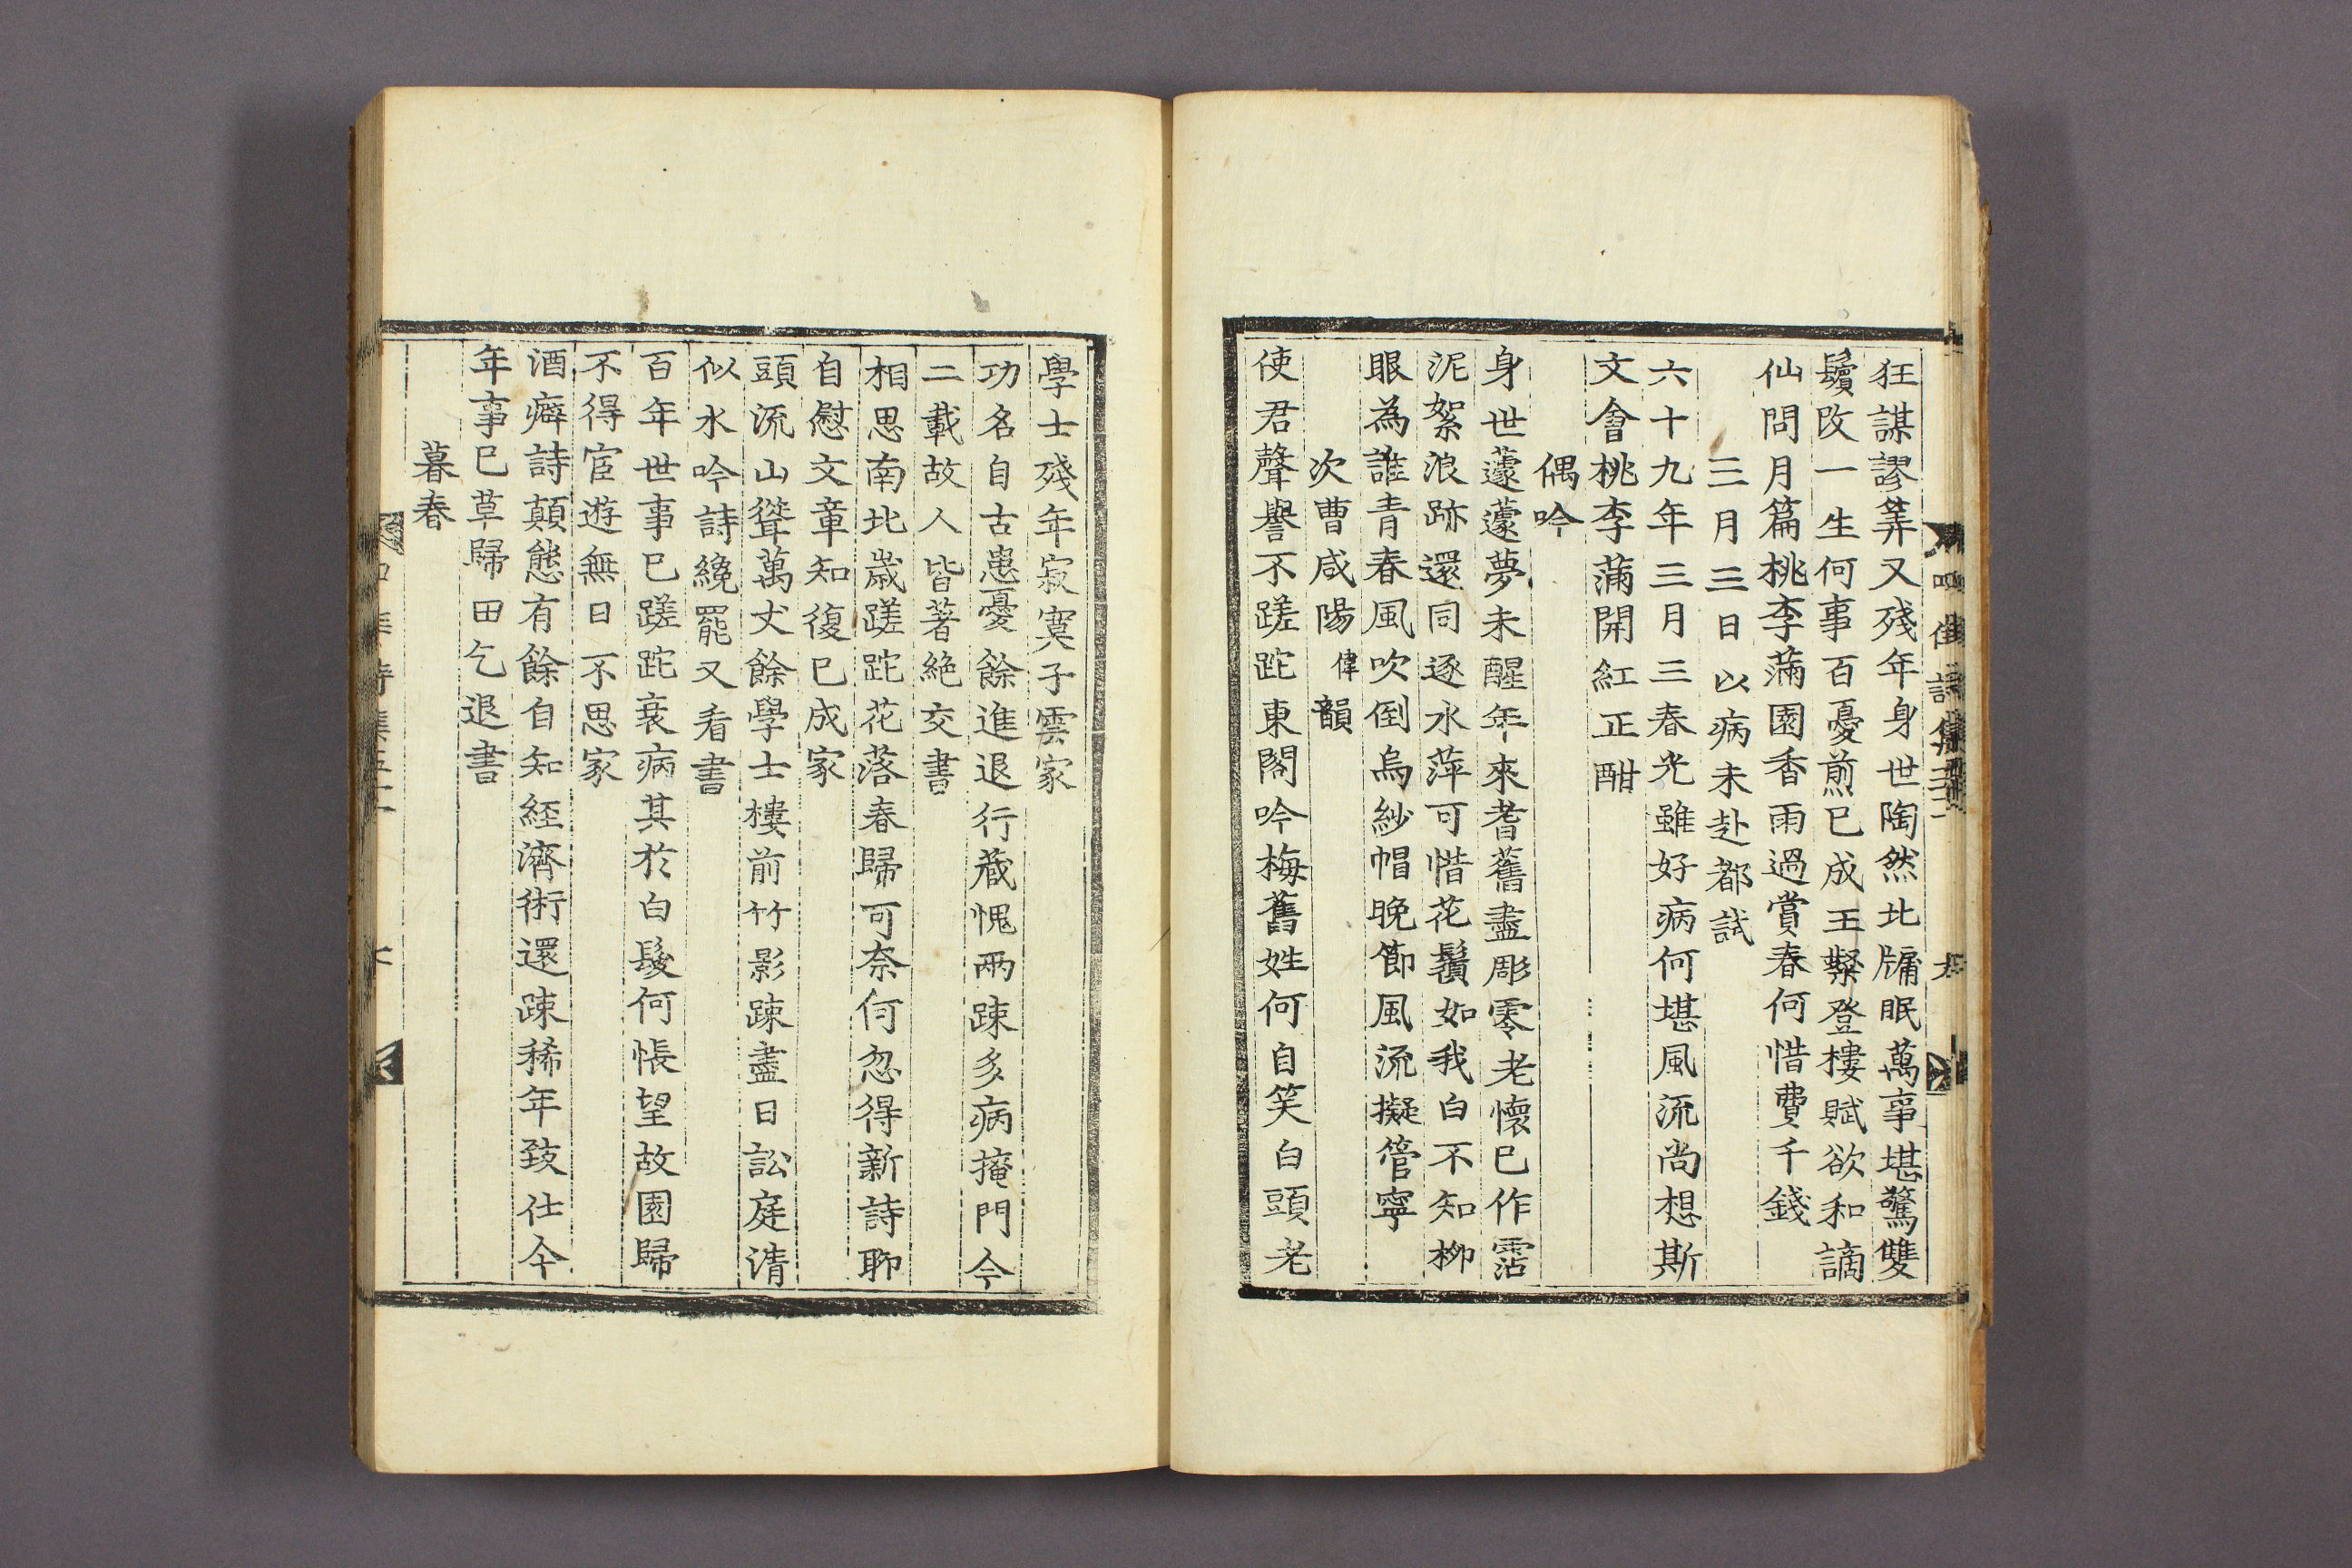 狂謀謬筭又殘年身世陶然北牗眠萬事堪驚雙
鬢改一生何事百憂煎已成王粲登樓賦欲和謫
仙問月篇桃李滿園香雨過賞春何惜費千錢
三月三日以病未赴都試
六十九年三月三春光雖好病何堪風流尚想斯
文會桃李滿開紅正酣
偶吟
身世蘧蘧夢未醒年來耆舊盡彫零老懷已作霑
泥絮浪跡還同逐水萍可惜花鬚如我白不知柳
眼為誰青春風吹倒烏紗帽晚節風流擬管寧
次曹咸陽偉韻
使君聲譽不蹉跎東閣吟梅舊姓何自笑白頭老
學士殘年寂寞子雲家
功名自古患憂餘進退行藏愧兩疎多病掩門今
二載故人皆著絶交書
相思南北歲蹉跎花落春歸可奈何忽得新詩聊
自慰文章知復已成家
頭流山聳萬丈餘學士樓前竹影疎盡日訟庭清
似水吟詩纔罷又看書
百年世事已蹉跎衰病其於白髮何悵望故園歸
不得宦遊無日不思家
酒癖詩顛態有餘自知経濟術還踈稀年致仕今
年事已草歸田乞退書
暮春